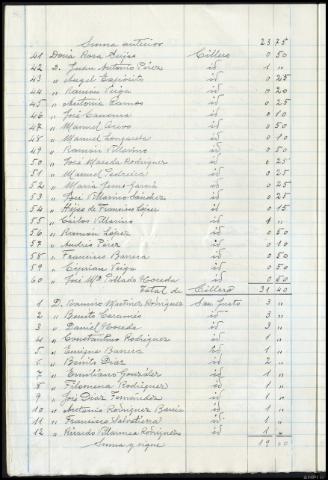 Suma anterior 23 75
41 Doña Rosa Seijas Cillero 0 50
42 D. Juan Antonio Pérez id 1 "
43 " Angel Expósito id 0 25
44 " Ramón Veiga id 0 20
45 " Antonio Ramos id 0 25
46 " José id 0 10
47 " Manuel id 0 50
48 " Manuel id 0 10
49 " Ramón Villarino id 0 50
50 " José Maseda Rodríguez id 0 25
51 " Manuel id 0 25
52 " María García id 0 25
53 " José Villarino Sánchez id 0 25
54 " Hijos de Francisco López id 0 15
55 " Carlos Villarino id 1 "
56 " Ramón López id 0 50
57 " Andrés Pérez id 0 10
58 " Francisco Barrera id 0 50
59 " Ciprian Veiga id 0 50
60 " José Mª id 0 50
Total de Cillero 31 40
1 D. Ramiro Martínez Rodríguez San Justo 3 "
2 " Benito id 3 "
3 " Daniel id 3 "
4 " Constantino Rodríguez id 1 "
5 " Enrique Barrera id 1 "
6 " Benito Díaz id 1 "
7 " Emiliano González id 1 "
8 " Filomena Rodríguez id 1 "
9 " José Díaz Fernández id 1 "
10 " Antonio Rodríguez id 1 "
11 " Francisco id 1 "
12 " Ricardo Villarmea Rodríguez id 1 "
Suma y sigue 19 00